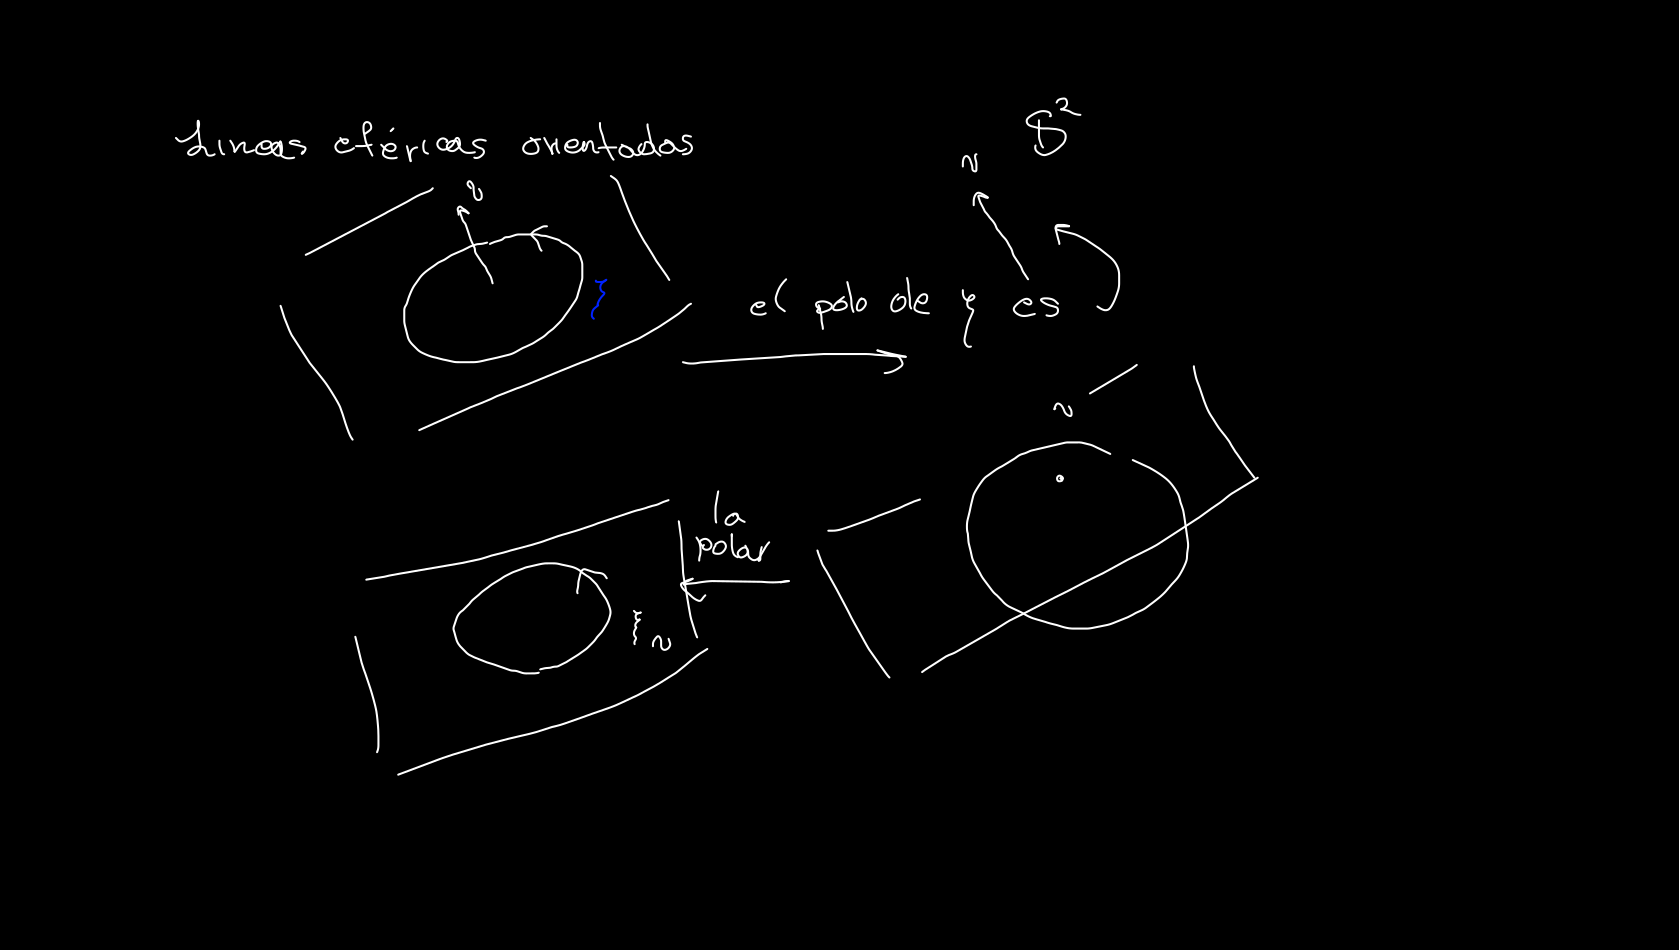 Líneas eféricas orientadas
S²
N
N
ξ
el polo de ξ es
N
la
polar
ξ N